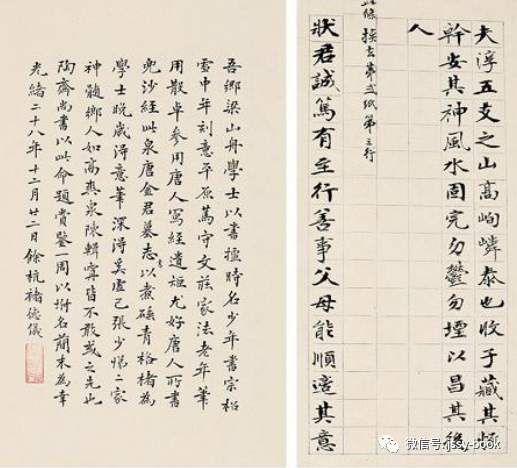 夫渟五支之山高峋嶙泰也收予藏其
幹安其神風水固完勿鬱勿堙以昌其後
人
此條接去第弍紙第三行
狀君誠篤有至行善事父母能順適其意
吾鄉梁山舟學士以書擅時名少年書宗松
雪中年刻意平原篤守文莊家法老年筆
用散卓參用唐人寫經遺矩尤好唐人所書
兜沙經此泉唐金君墓志以煮硾青格楮為
學士晚歲得意筆深得奚虛己張少悌二家
神髓鄉人如高爽泉陳輯寧皆不敢或之先也
陶齋尚書以此命題賞鑒一周以坿名簡末為幸
光緒二十八年十二月廿二日餘杭褚德儀
微信号:jssy-book